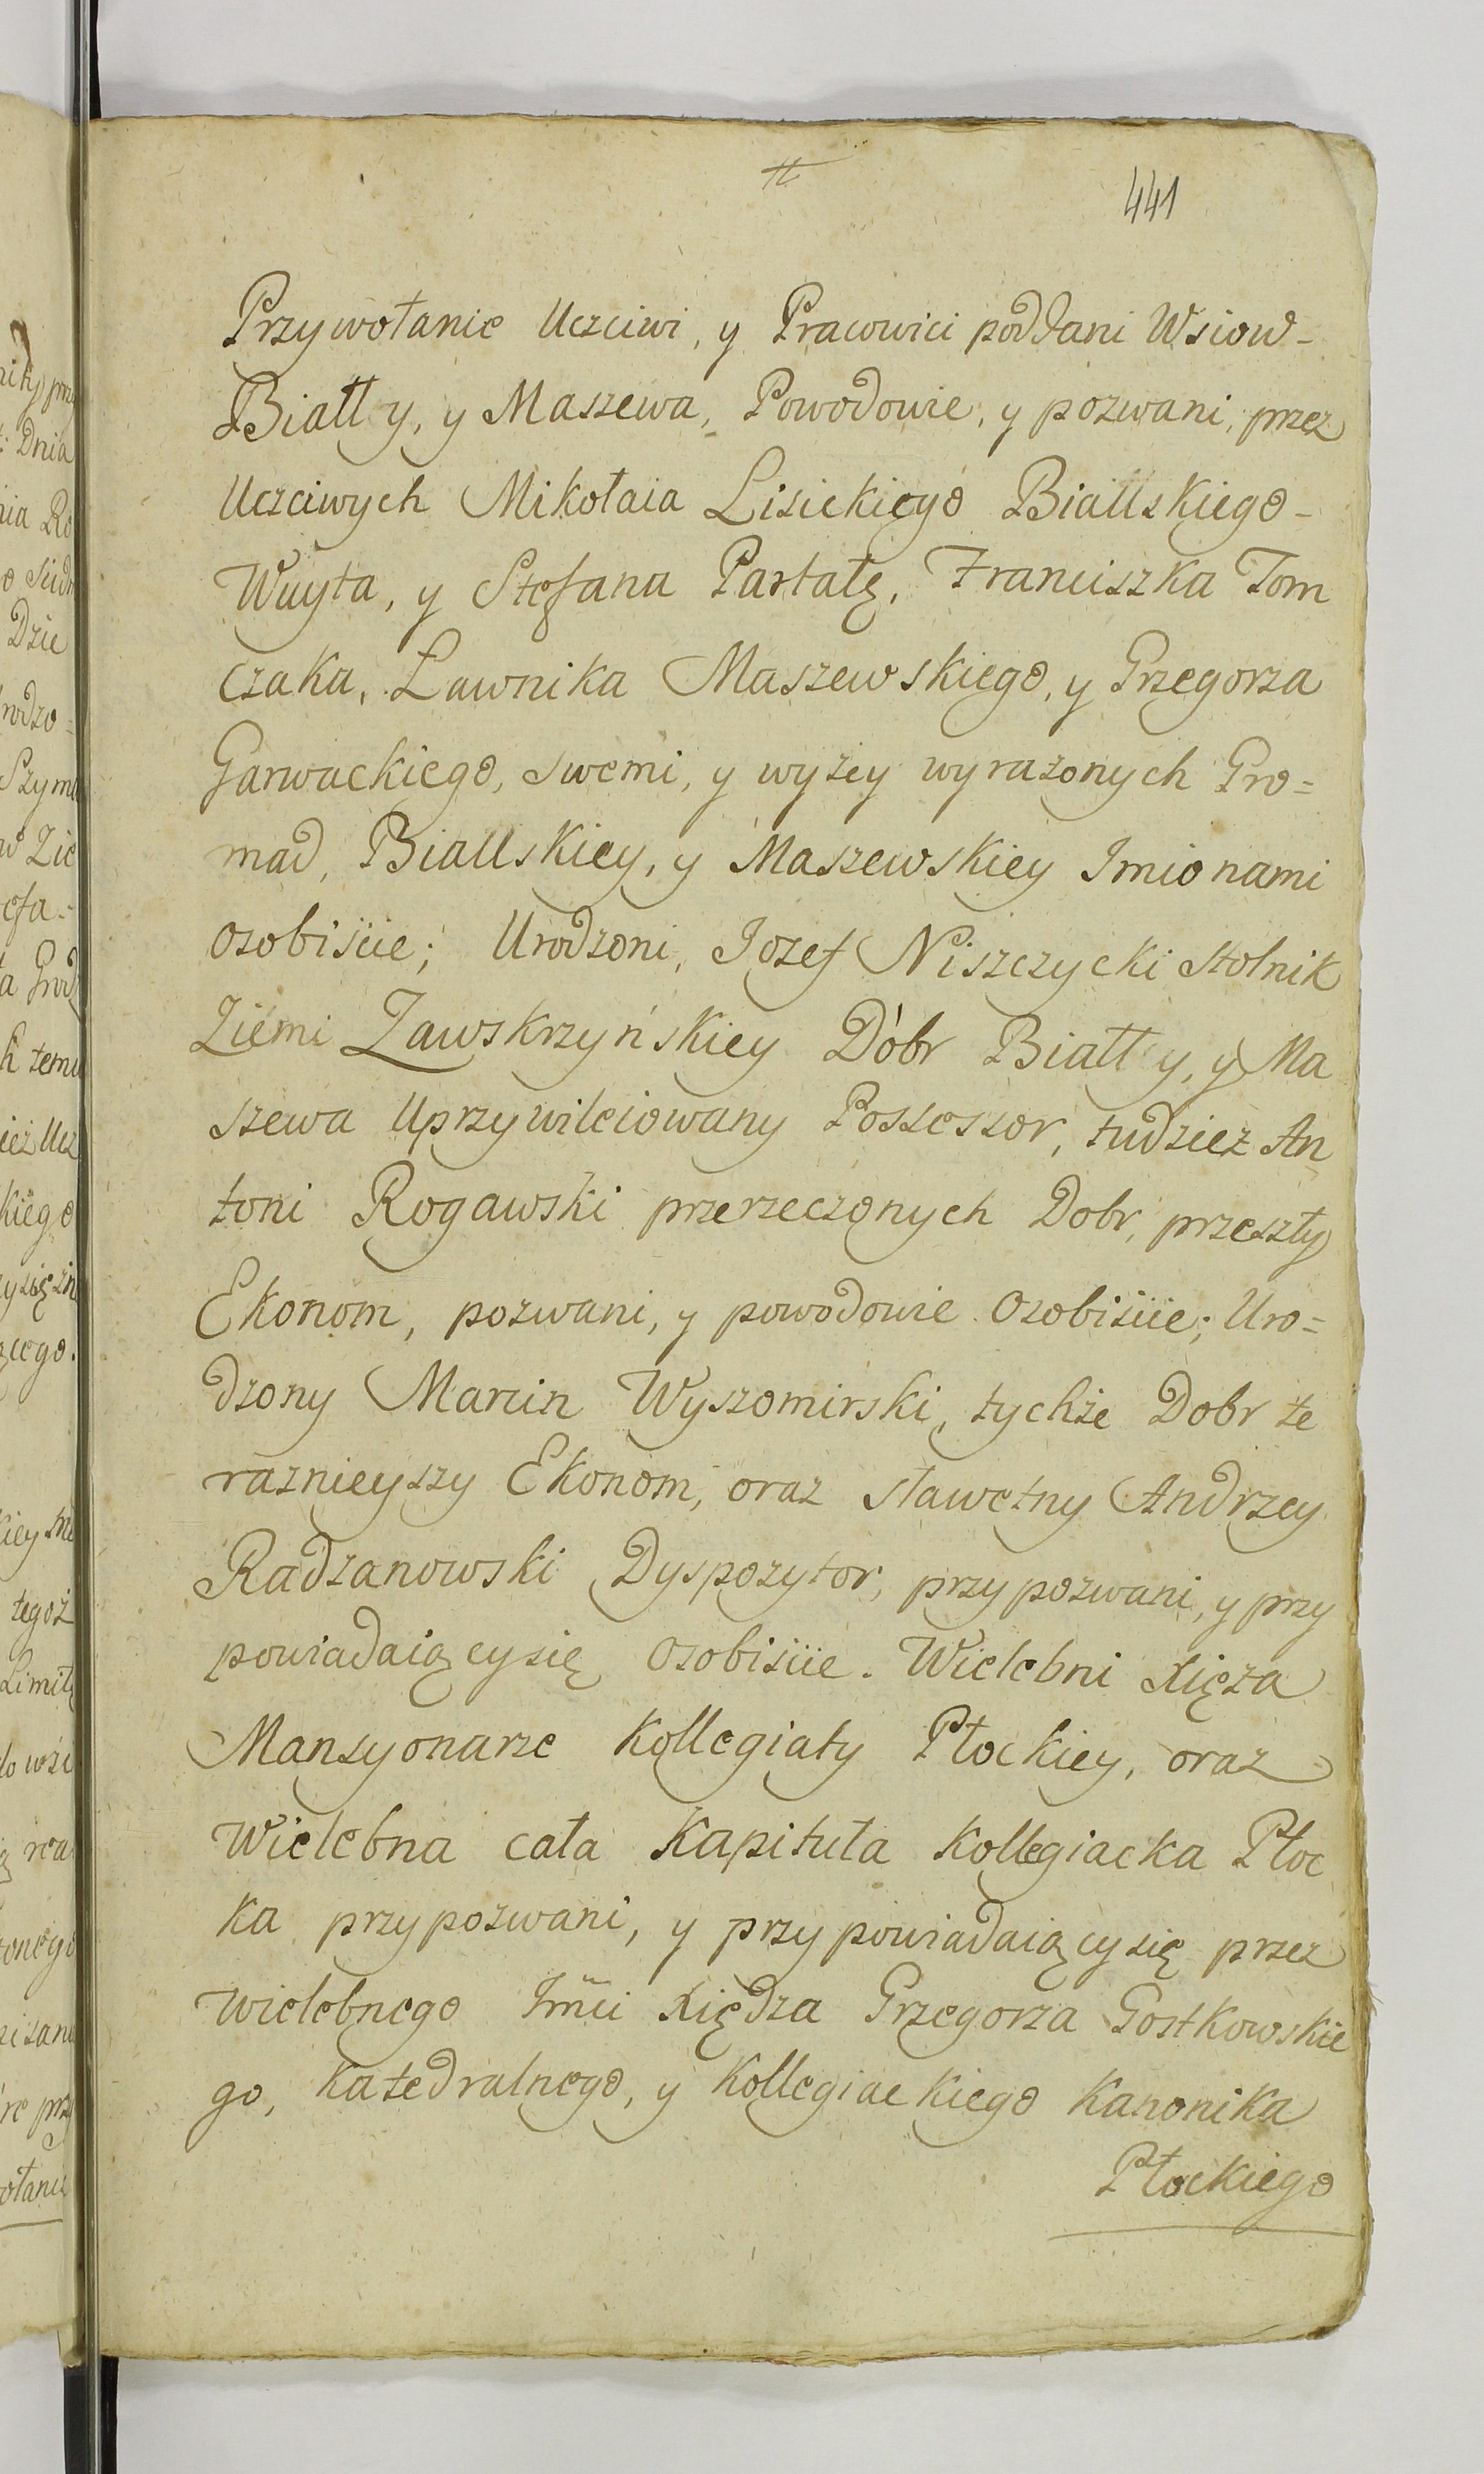 441
Przywołanie Uczciwi, y Pracowici poddani Wsiow-
Biatły, y Maszewa, Powodowie, y pozwani, przez
Uczciwych Mikołaia Lisickiego Biallskiego-
Wuyta, y Stefana Partałę, Franciszka Tom
czaka, Ławnika Maszewskiego, y Grzegorza
Garwackiego, swemi, y wyżey wyrażonych Gro=
mad, Biallskiey, y Maszewskiey Imionami
osobiscie; Urodzoni, Jozef Niszczycki Stolnik
Ziemi Zawskrzyńskiey Dóbr Biatły, y Ma
szewa Uprzywileiowany Possessor, tudziez An
toni Rogawski przerzeczonych Dobr, przeszły
Ekonom, pozwani, y powodowie osobiscie; Uro=
dzony Marcin Wyszomirski, tychże Dobr te
raznieyszy Ekonom, oraz sławetny Andrzey
Radzanowski Dyspozytor, przypozwani, y przy
powiadaiący się osobiscie. Wielebni Xięża
Mansyonarze Kollegiaty Płockiey, oraz
Wielebna cała Kapituła Kollegiacka Płoc
ka przypozwani, y przypowiadaiący się przez
wielebnego Jmći Xiędza Grzegorza Gostkowskie
go, Katedralnego, y Kollegiackiego Kanonika
Płockiego